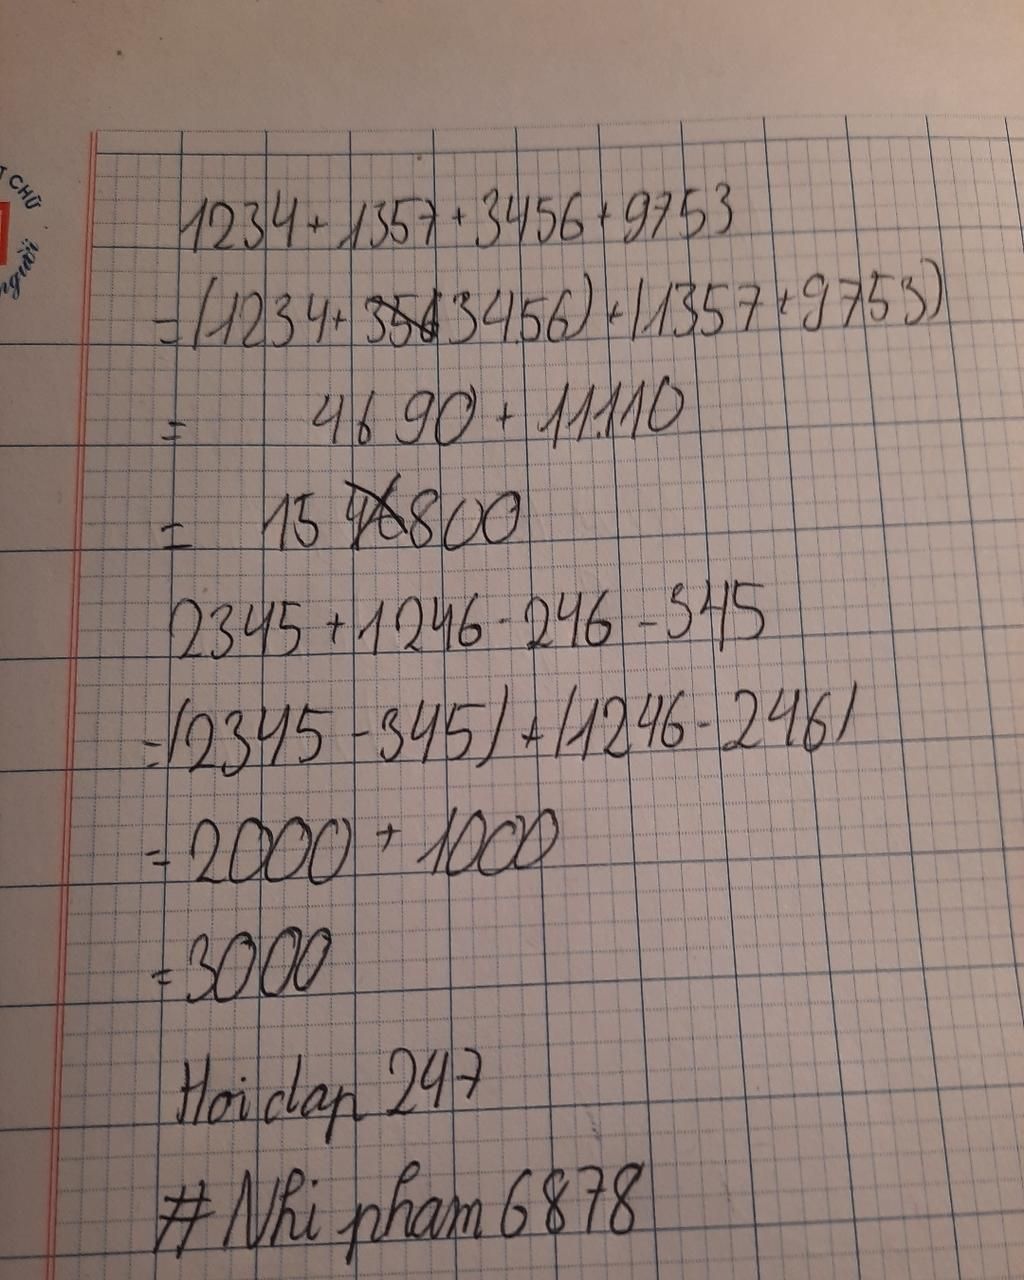 T CHỮ
người
1234+1357+3456+9753
=(1234+3456)+(1357+9753)
= 4690+11.110
= 15800
2345+1246-246-345
=(2345-345)+(1246-246)
=2000+1000
=3000
Hoidap 247
#Nhi pham6878